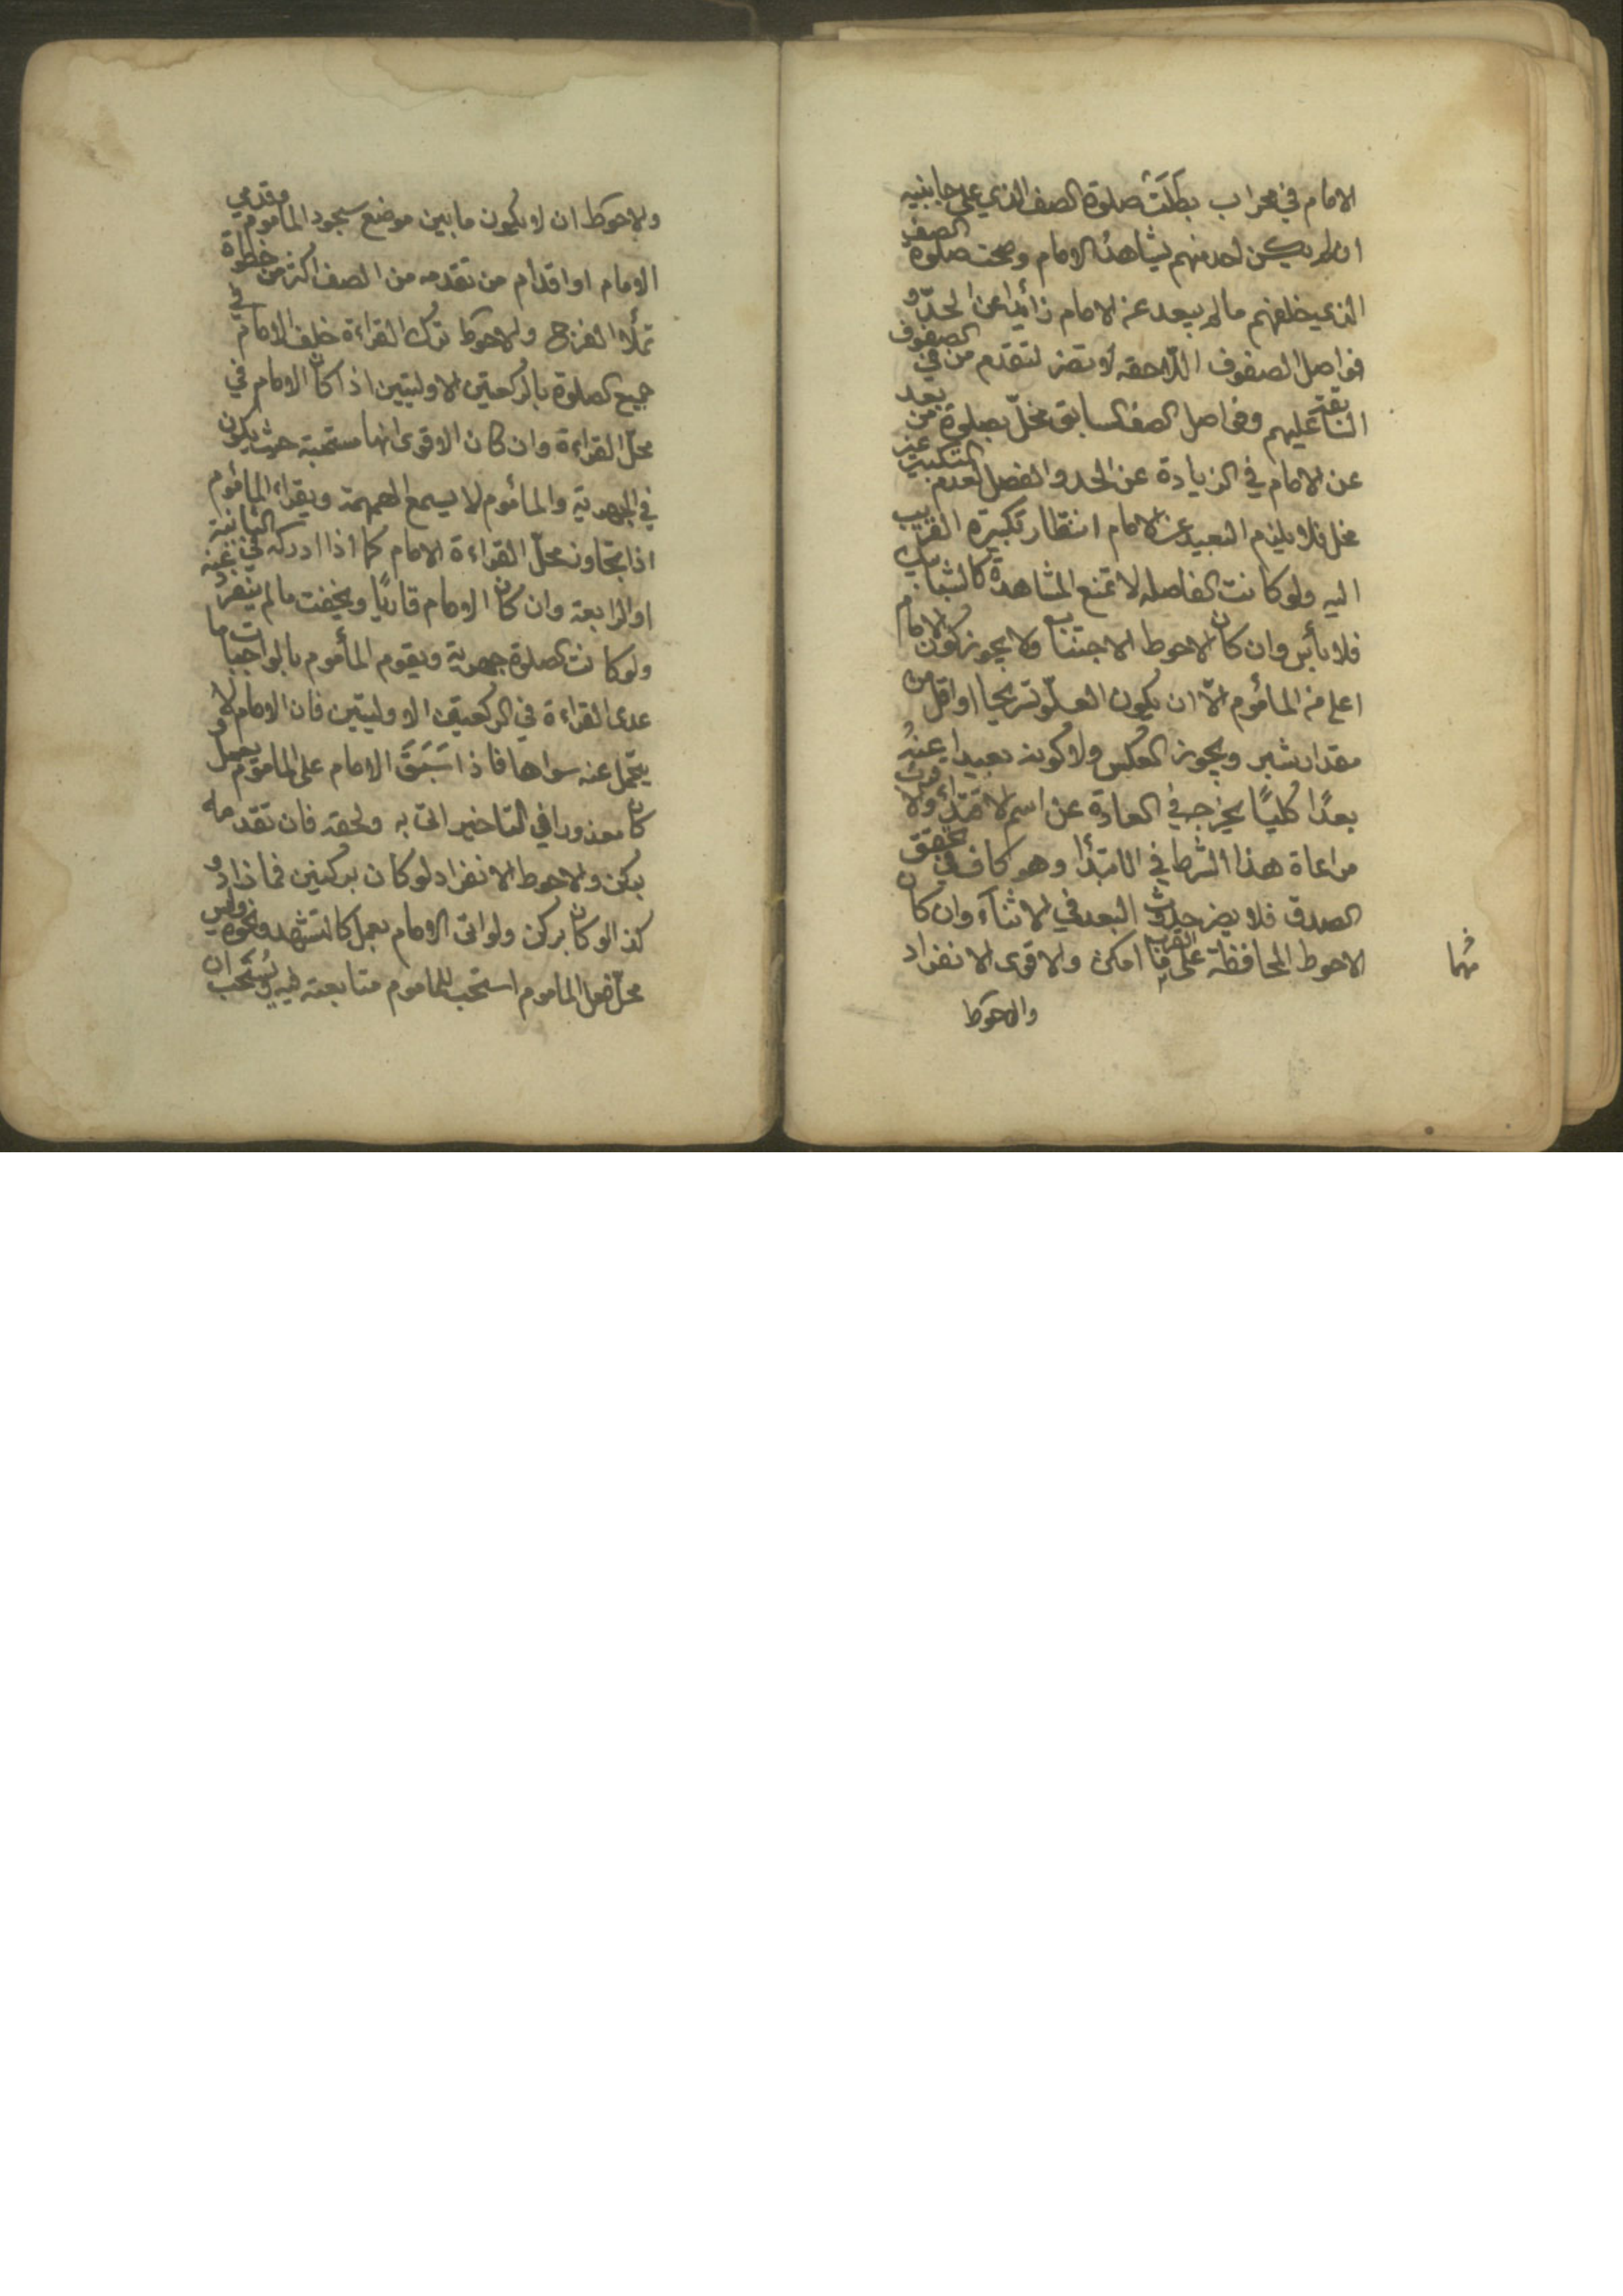 الامام في محراب بطلت صلوة الصف الذي على جانبيه
ان لم يكن احد منهم يشاهد الامام وصحت صلوة الصف
الذي خلفهم ما لم يبعد عن الامام زائدا عن الحدّ و
فواصل الصفوف اللاحقه لا تضر لتقدم من في الصفوف
السابقة عليهم وفواصل الصف السابق مخلّ بصلوة من بعد
عن الامام في الزيادة عن الحد والفصل لعدم التكبير غير
مخل فلا يلزم البعيد عن الامام انتظار تكبيرة القريب
اليه ولو كانت الفاصله لا تمنع المشاهدة كالشبابيك
فلا بأس وان كان الاحوط الاجتناب ولا يجوز كون الامام
اعلى من المأموم الّا ان يكون العلوّ تدريجيا او اقل من
مقدار شبر ويجوز العكس ولا كونه بعيدا عنهُ
بعدًا كليًا يخرج في العادة عن اسم الاقتداء ولا
مراعاة هذا الشرط في الابتدأ وهو كاف في تحقق
الصدق فلا يضر حدوث البعد في الاثناء وان كان
الاحوط المحافظة على القرب امكن والاقوى الانفراد
مهما
والاحوط
والاحوط ان لا يكون ما بين موضع سجود المأموم وقدمي
الامام او اقدام من تقدمه من الصف اكثر من خطوة
تملأ الفرج والاحوط ترك القراءة خلف الامام في
جميع الصلوة بالركعتين الاوليتين اذا كان الامام في
محلّ القراءة وان كان الاقوى انها مستحبة حيث يكون
في الجهرية والمأموم لا يسمع الهمهمة ويقراء المأموم
اذا تجاوز محلّ القراءة الامام كما اذا ادركه في الثانية
او الرابعة وان كان الامام قارئًا ويخفت ما لم ينفرد عنه
ولو كانت الصلوة جهرية ويقوم المأموم بالواجبات ما
عدى القراءة في الركعتين الاوليتين فان الامام لا
يتحمل عنه سواها فاذا سَبَقَ الامام على المأموم بعمل و
كان معذورا في التاخير اتى به ولحقه فان تقدمه
بركن والاحوط الانفراد لو كان بركنين فما زاد و
كذا لو كان بركن ولو اتى الامام بعمل كالتشهد ونحوه وليس
محلّ فعل المأموم استحب للماموم متابعته فيه ويُستحب ان